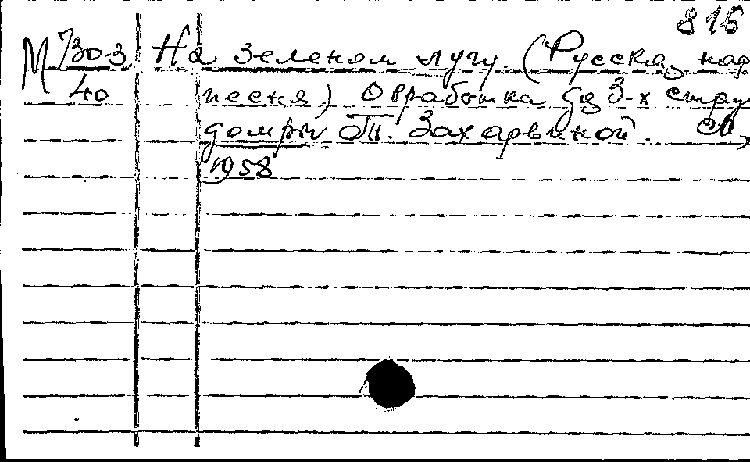 816
М 730-3 На зеленом лугу. (Русская нар
40 песня) Обработка дл 3-х стру
домры Т. Захарьиной.
1958